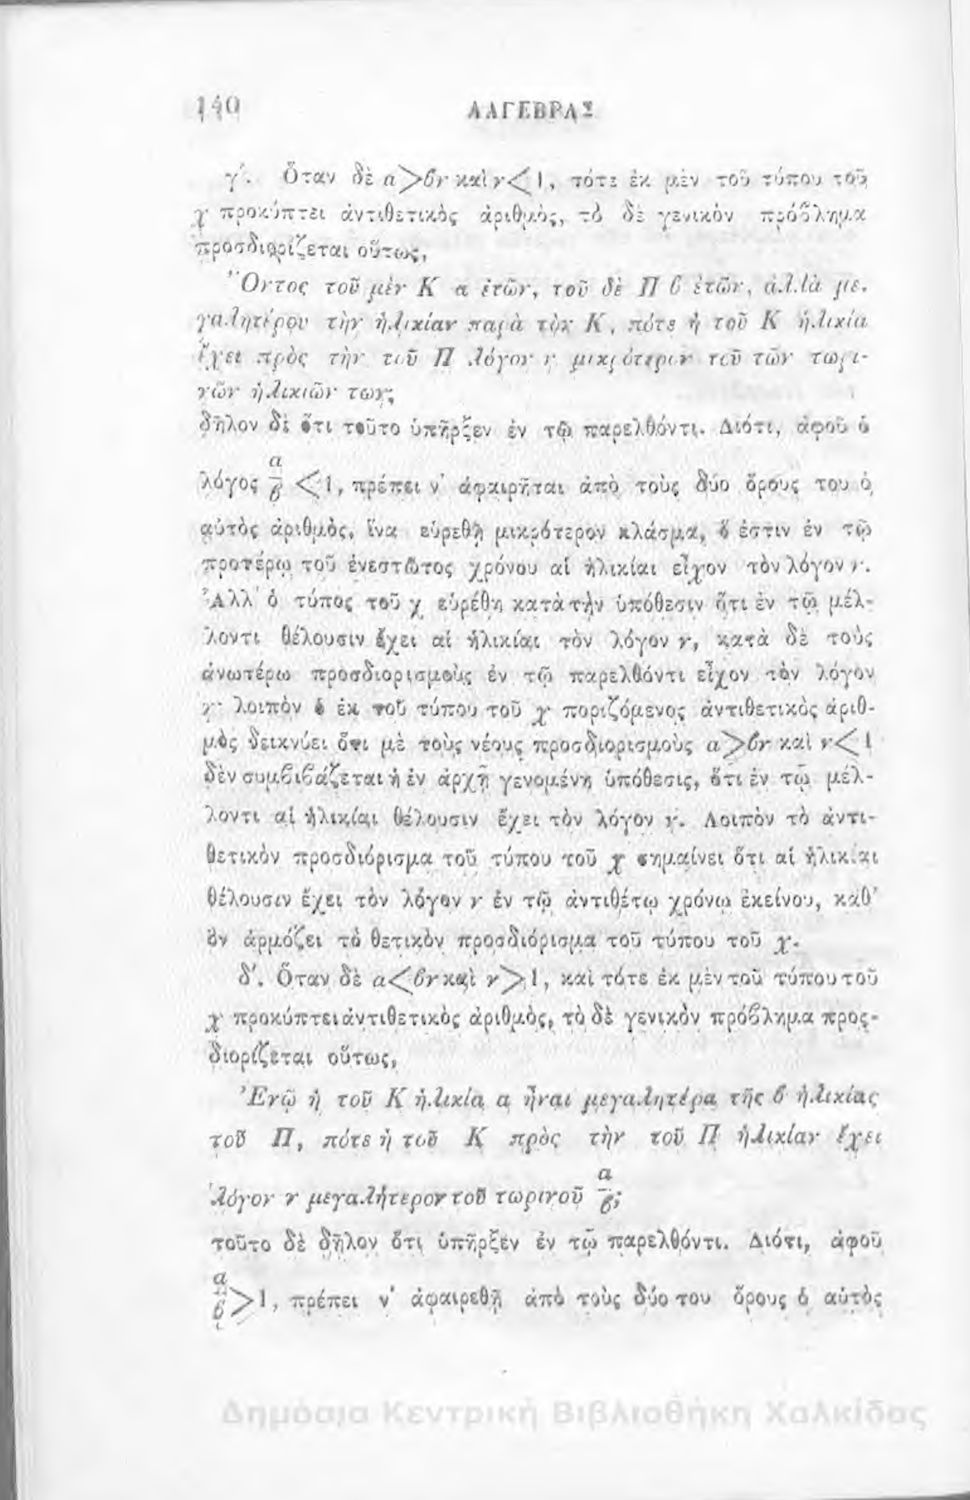 140 ΑΛΓΕΒΡΑΣ
γ'. Ὅταν δὲ α>βν καὶ ν<1, τότε ἐκ μὲν τοῦ τύπου τοῦ
χ προκύπτει ἀντιθετικὸς ἀριθμὸς, τὸ δὲ γενικὸν πρόβλημα
προσδιορίζεται οὕτως,
Ὄντος τοῦ μὲν Κ α ἐτῶν, τοῦ δὲ Π β ἐτῶν, ἀλλὰ με-
γαλητέρου τὴν ἡλικίαν παρὰ τὸν Κ, πότε ἡ τοῦ Κ ἡλικία
ἔχει πρὸς τὴν τοῦ Π λόγον ν μικρότερον τοῦ τῶν τωρι-
νῶν ἡλικιῶν των;
δῆλον δὲ ὅτι τοῦτο ὑπῆρξεν ἐν τῷ παρελθόντι. Διότι, ἀφοῦ ὁ
λόγος α/β <1, πρέπει ν' ἀφαιρῆται ἀπὸ τοὺς δύο ὅρους του ὁ
αὐτὸς ἀριθμὸς, ἵνα εὑρεθῇ μικρότερον κλάσμα, ὅ ἐστιν ἐν τῷ
προτέρῳ τοῦ ἐνεστῶτος χρόνου αἱ ἡλικίαι εἶχον τὸν λόγον ν.
Ἀλλ' ὁ τύπος τοῦ χ εὑρέθη κατὰ τὴν ὑπόθεσιν ὅτι ἐν τῷ μέλ-
λοντι θέλουσιν ἔχει αἱ ἡλικίαι τὸν λόγον ν, κατὰ δὲ τοὺς
ἀνωτέρω προσδιορισμοὺς ἐν τῷ παρελθόντι εἶχον τὸν λόγον
ν· λοιπὸν ὁ ἐκ τοῦ τύπου τοῦ χ ποριζόμενος ἀντιθετικὸς ἀριθ-
μὸς δεικνύει ὅτι μὲ τοὺς νέους προσδιορισμοὺς α>βν καὶ ν<1
δὲν συμβιβάζεται ἡ ἐν ἀρχῇ γενομένη ὑπόθεσις, ὅτι ἐν τῷ μέλ-
λοντι αἱ ἡλικίαι θέλουσιν ἔχει τὸν λόγον ν. Λοιπὸν τὸ ἀντι-
θετικὸν προσδιόρισμα τοῦ τύπου τοῦ χ σημαίνει ὅτι αἱ ἡλικίαι
θέλουσιν ἔχει τὸν λόγον ν ἐν τῷ ἀντιθέτῳ χρόνῳ ἐκείνου, καθ'
ὃν ἁρμόζει τὸ θετικὸν προσδιόρισμα τοῦ τύπου τοῦ χ.
δ'. Ὅταν δὲ α<βν καὶ ν>1, καὶ τότε ἐκ μὲν τοῦ τύπου τοῦ
χ προκύπτει ἀντιθετικὸς ἀριθμὸς, τὸ δὲ γενικὸν πρόβλημα προς-
διορίζεται οὕτως,
Ἐνῷ ἡ τοῦ Κ ἡλικία α ἦναι μεγαλητέρα τῆς β ἡλικίας
τοῦ Π, πότε ἡ τοῦ Κ πρὸς τὴν τοῦ Π ἡλικίαν ἔχει
λόγον ν μεγαλήτερον τοῦ τωρινοῦ α/β;
τοῦτο δὲ δῆλον ὅτι ὑπῆρξεν ἐν τῷ παρελθόντι. Διότι, ἀφοῦ
α/β>1, πρέπει ν' ἀφαιρεθῇ ἀπὸ τοὺς δύο του ὅρους ὁ αὐτὸς
Δημόσια Κεντρική Βιβλιοθήκη Χαλκίδας